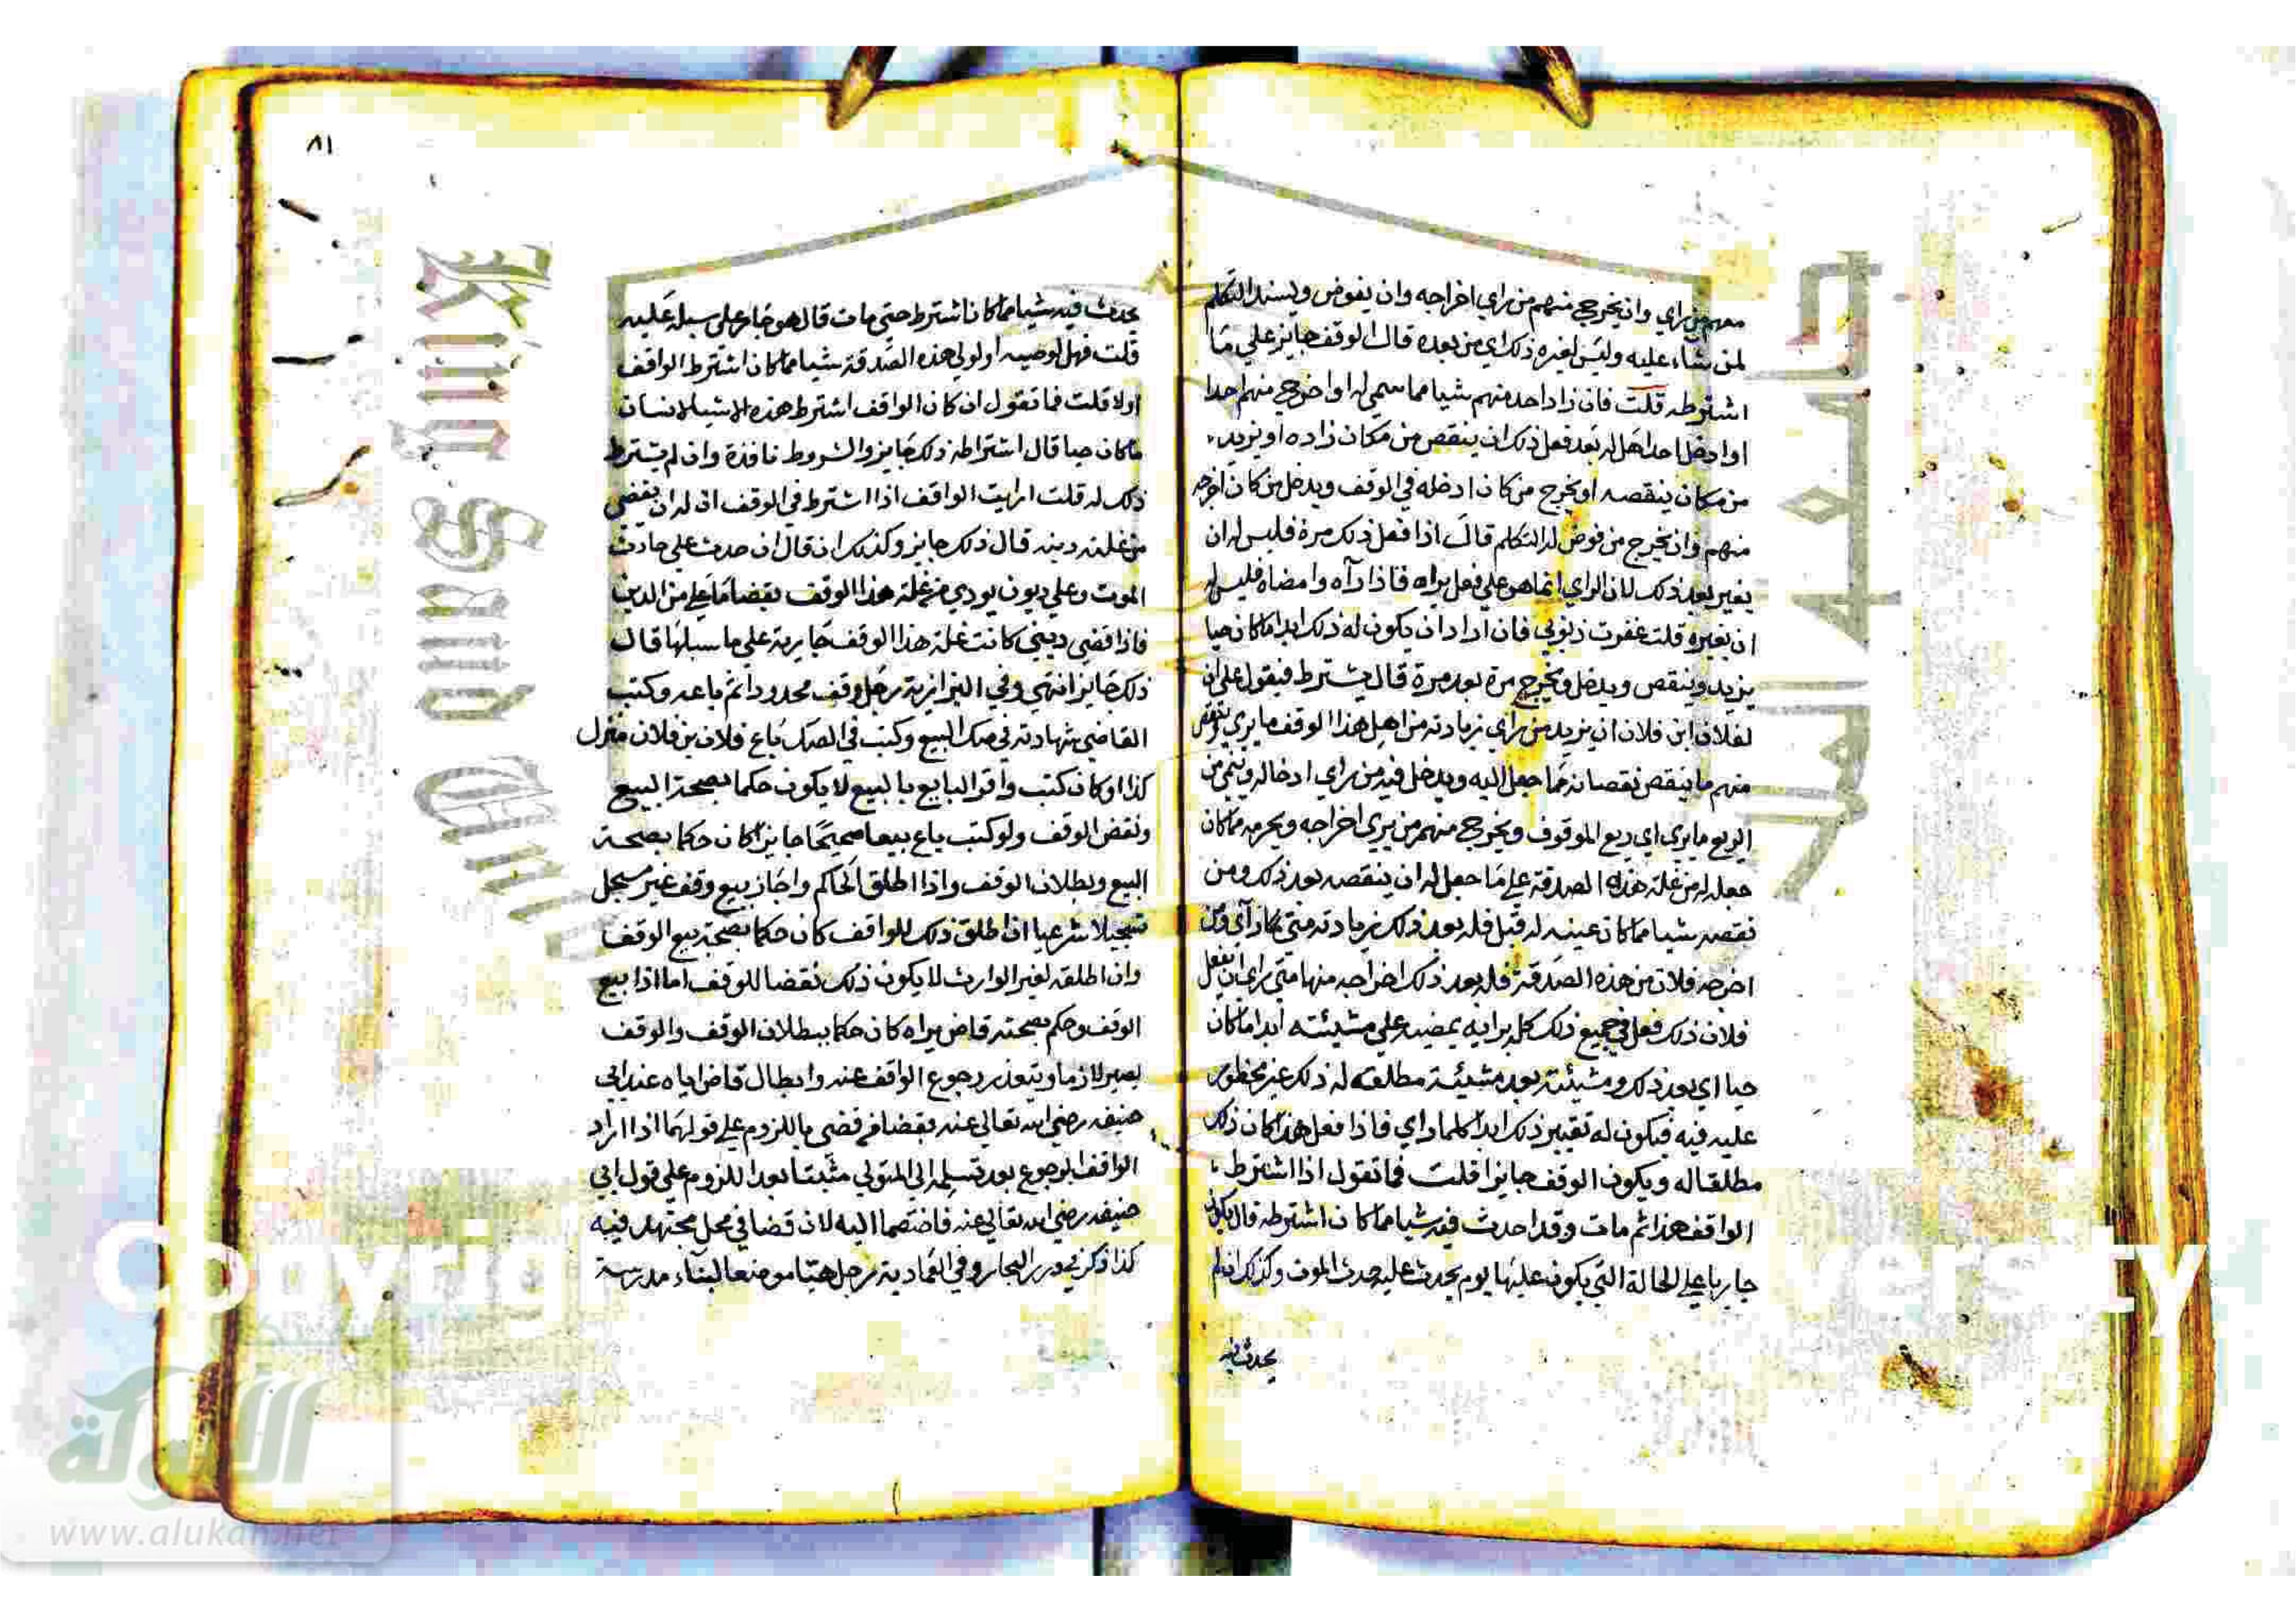 معهم من راي وان يخرج منهم من راي اخراجه وان يفوض ويسند التكلم
لمن شاء عليه وليس لغيره ذلك اي من بعده قال الوقف جايز علي ما
اشترطه قلت فان زاد احد منهم شيا مما سمي له او اخرج منهم احدا
او ادخل احدا هل له بعد فعل ذلك ان ينقص من مكان زاده او يزيد
من مكان ينقصه او يخرج من كان ادخله في الوقف ويدخل من كان اخرجه
منهم وان يخرج من فوض له التكلم قال اذا فعل ذلك مرة فليس له ان
يغير بعد ذلك لان الراي انما هو علي فعل يراه فاذا رآه وامضاه فليس له
ان يغيره قلت غفرت ذنوبي فان اراد ان يكون له ذلك ابدا ماكان حيا
يزيد وينقص ويدخل ويخرج مرة بعد مرة قال يشترط فيقول علي ان
لفلان ابن فلان ان يزيد من راي زيادته من اهل هذا الوقف ما يري وينقص
منهم ما ينقص نقصانه مما جعل اليه ويدخل فيه من راي ادخاله من
الريع ما يري اي ريع الموقوف ويخرج منهم من يري اخراجه ويحرمه مماكان
جعل له من غلة هذه الصدقة علي ما جعل له ان ينقصه بعد ذلك ومن
نقصه شيا مما كان عينه له قبل فله بعد ذلك زيادته متي راي ومن
اخرجه فلان من هذه الصدقة فله بعد ذلك اخراجه منها متي راي ان يفعل
فلان ذلك فعل في جميع ذلك كله برايه يمضيه علي مشيئته ابدا ماكان
حيا اي بعد ذلك ومشيئته بعد مشيئة مطلقة له ذلك غير محظور
عليه فيه فيكون له تغيير ذلك ابدا كلما راي فاذا فعل هذا كان ذلك
مطلقا له ويكون الوقف جايزا قلت فما تقول اذا اشترط
الواقف هذا ثم مات وقد احدث فيه شيا مما كان اشترطه قال يكون
جاريا علي الحالة التي يكون عليها يوم يحدث عليه حدث الموت وكذلك ان لم
يحدث فيه
٨١
يحدث فيه شيا مما كان اشترط حتي مات قال هو جايز علي سبله عليه
قلت فهل لوصيه او لولي هذه الصدقة شيا مما كان اشترط الواقف
اولا قلت فما تقول ان كان الواقف اشترط هذه الاشيا لانسان
ماكان حيا قال اشتراطه ذلك جايز والشروط نافذة وان لم يشترط
ذلك له قلت ارايت الواقف اذا اشترط في الوقف ان له ان يقضي
من غلته دينه قال ذلك جايز وكذلك ان قال ان حدث علي حادث
الموت وعلي ديون يودي من غلة هذا الوقف بقضا ما علي من الدين
فاذا قضي ديني كانت غلة هذا الوقف جارية علي ما سبلها قال
ذلك جايز انتهي وفي البزازية رجل وقف محدودا ثم باعه وكتب
القاضي شهادته في صك البيع وكتب في الصك باع فلان بن فلان منزل
كذا او كان كتب واقر البايع بالبيع لا يكون حكما بصحة البيع
ونقض الوقف ولو كتب باع بيعا صحيحا جايزا كان حكما بصحة
البيع وبطلان الوقف واذا اطلق الحاكم واجاز بيع وقف غير مسجل
تسجيلا شرعيا ان اطلق ذلك للواقف كان حكما بصحة بيع الوقف
وان اطلقه لغير الوارث لا يكون ذلك نقضا للوقف اما اذا بيع
الوقف وحكم بصحته قاض يراه كان حكما ببطلان الوقف والوقف
يصير لازما ويتعذر رجوع الواقف عنه وابطال قاض اياه عند ابي
حنيفه رضي الله تعالي عنه بقضا قضي باللزوم علي قولهما اذا اراد
الواقف الرجوع بعد تسليمه الي المتولي مثبتا بعد اللزوم علي قول ابي
حنيفه رضي الله تعالي عنه فاختصما اليه لان قضا في محل مجتهد فيه
كذا ذكر في درر البحار وفي العمادية رجل هيا موضعا لبناء مدرسة
جامعة الملك
King Saud Univ
Copyrig
versity
الألوكة
www.alukah.net